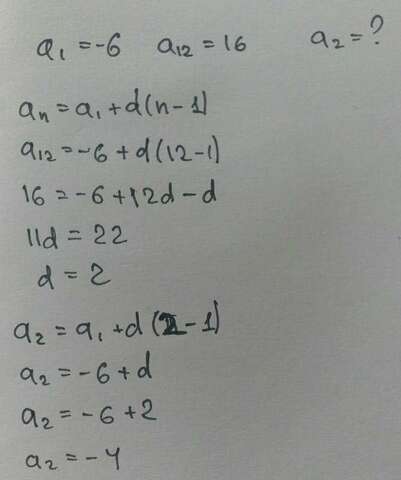 a₁ = -6 a₁₂ = 16 a₂ = ?
aₙ = a₁ + d(n - 1)
a₁₂ = -6 + d(12 - 1)
16 = -6 + 12d - d
11d = 22
d = 2
a₂ = a₁ + d(2 - 1)
a₂ = -6 + d
a₂ = -6 + 2
a₂ = -4